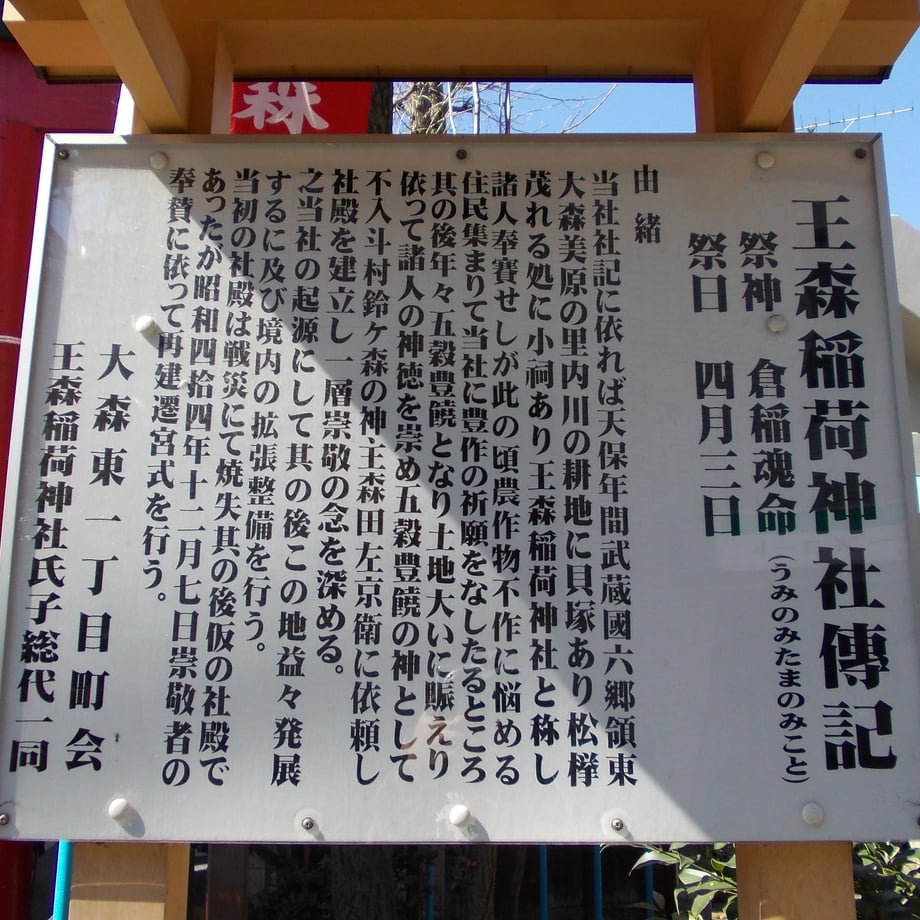 王森稲荷神社傳記
祭神　倉稲魂命（うみのみたまのみこと）
祭日　四月三日
由緒
当社社記に依れば天保年間武蔵國六郷領東
大森美原の里内川の耕地に貝塚あり松欅
茂れる処に小祠あり王森稲荷神社と称し
諸人奉賽せしが此の頃農作物不作に悩める
住民集まりて当社に豊作の祈願をなしたるところ
其の後年々五穀豊饒となり土地大いに賑えり
依って諸人の神徳を崇め五穀豊饒の神として
不入斗村鈴ケ森の神主森田左京衛に依頼し
社殿を建立し一層崇敬の念を深める。
之当社の起源にして其の後この地益々発展
するに及び境内の拡張整備を行う。
当初の社殿は戦災にて焼失其の後仮の社殿で
あったが昭和四拾四年十二月七日崇敬者の
奉賛に依って再建遷宮式を行う。
大森東一丁目町会
王森稲荷神社氏子総代一同
森